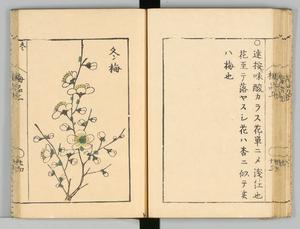 ○達按味酸カラス花單ニメ淺紅也
花至テ落ヤスシ花ハ杏ニ似テ実
ハ梅也
冬梅
冬